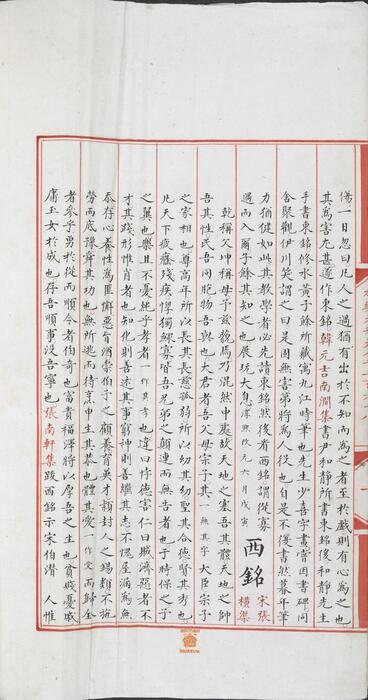 傷一日忽曰凡人之過猶有出於不知而為之者至於戲則有心為之也
其為害尤甚遂作東銘韓元吉南澗集書尹和靖所書東銘後和靖先生
手書東銘修水黃子餘所藏寓九江時筆也先生少喜字畫嘗書碑同
舍聚觀伊川笑謂之曰是固無害第將為人役也自是不復書然暮年筆
力猶健如此其教學者必先讀東銘然後看西銘謂從寡
過而入爾子餘其知之也展玩太息淳熙改元六月戊寅
西銘 宋張橫渠
乾稱父坤稱母予茲藐焉乃混然中處故天地之塞吾其體天地之帥
吾其性民吾同胞物吾與也大君者吾父母宗子其一無其字大臣宗子
之家相也尊高年所以長其長慈孤弱所以幼其幼聖其合德賢其秀也
凡天下疲癃殘疾惸獨鰥寡皆吾兄弟之顛連而無告者也于時保之子
之翼也樂且不憂純乎孝者一作其孝也違曰悖德害仁曰賊濟惡者不
才其踐形惟肖者也知化則善述其事窮神則善繼其志不愧屋漏為無
忝存心養性為匪懈惡旨酒崇伯子之顧養育英才穎封人之錫類不弛
勞而底豫舜其功也無所逃而待烹申生其恭也體其愛一作受而歸全
者參乎勇於從而順令者伯奇也富貴福澤將以厚吾之生也貧賤憂戚
庸玉女於成也存吾順事沒吾寧也張南軒集跋西銘示宋伯潛 人惟